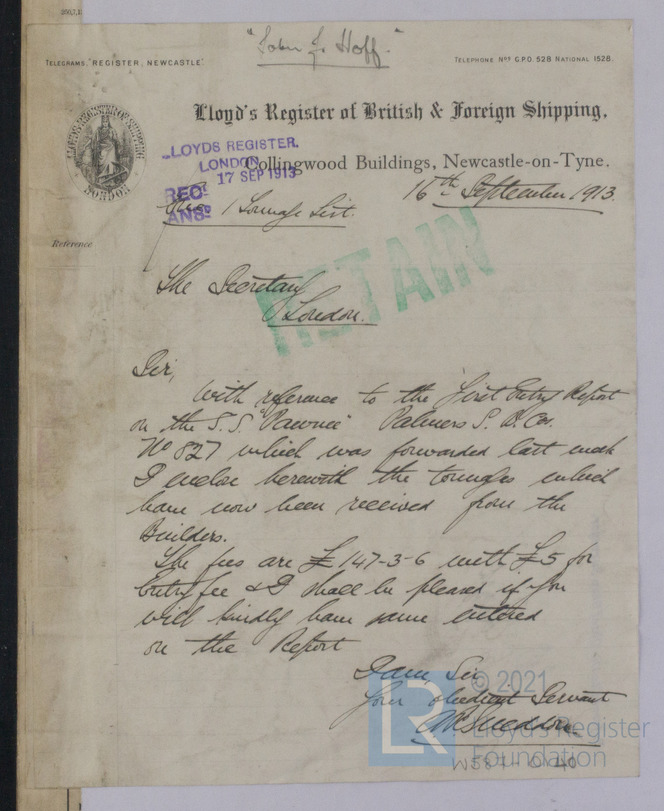 "John J. Hoff."
TELEGRAMS, "REGISTER, NEWCASTLE."
TELEPHONE Nos G.P.O. 528 NATIONAL 1528.
LLOYD'S REGISTER OF BRITISH & FOREIGN SHIPPING
LONDON
Lloyd's Register of British & Foreign Shipping,
Collingwood Buildings, Newcastle-on-Tyne.
LLOYDS REGISTER.
LONDON
17 SEP 1913
REC'D
ANSD
16th September 1913.
1 Tonnage List.
Reference
RETAIN
The Secretary
London.
Sir,
With reference to the First Entry Report
on the S.S. "Pawnee" Palmers S. B. Cos.
No 827 which was forwarded last week
I enclose herewith the tonnages which
have now been received from the
Builders.
The fees are £147-3-6 with £5 for
Entry fee & I shall be pleased if you
will kindly have same entered
on the Report
I am, Sir
Your obedient Servant
© 2021
Lloyd's Register
Foundation
LR
W587-0040